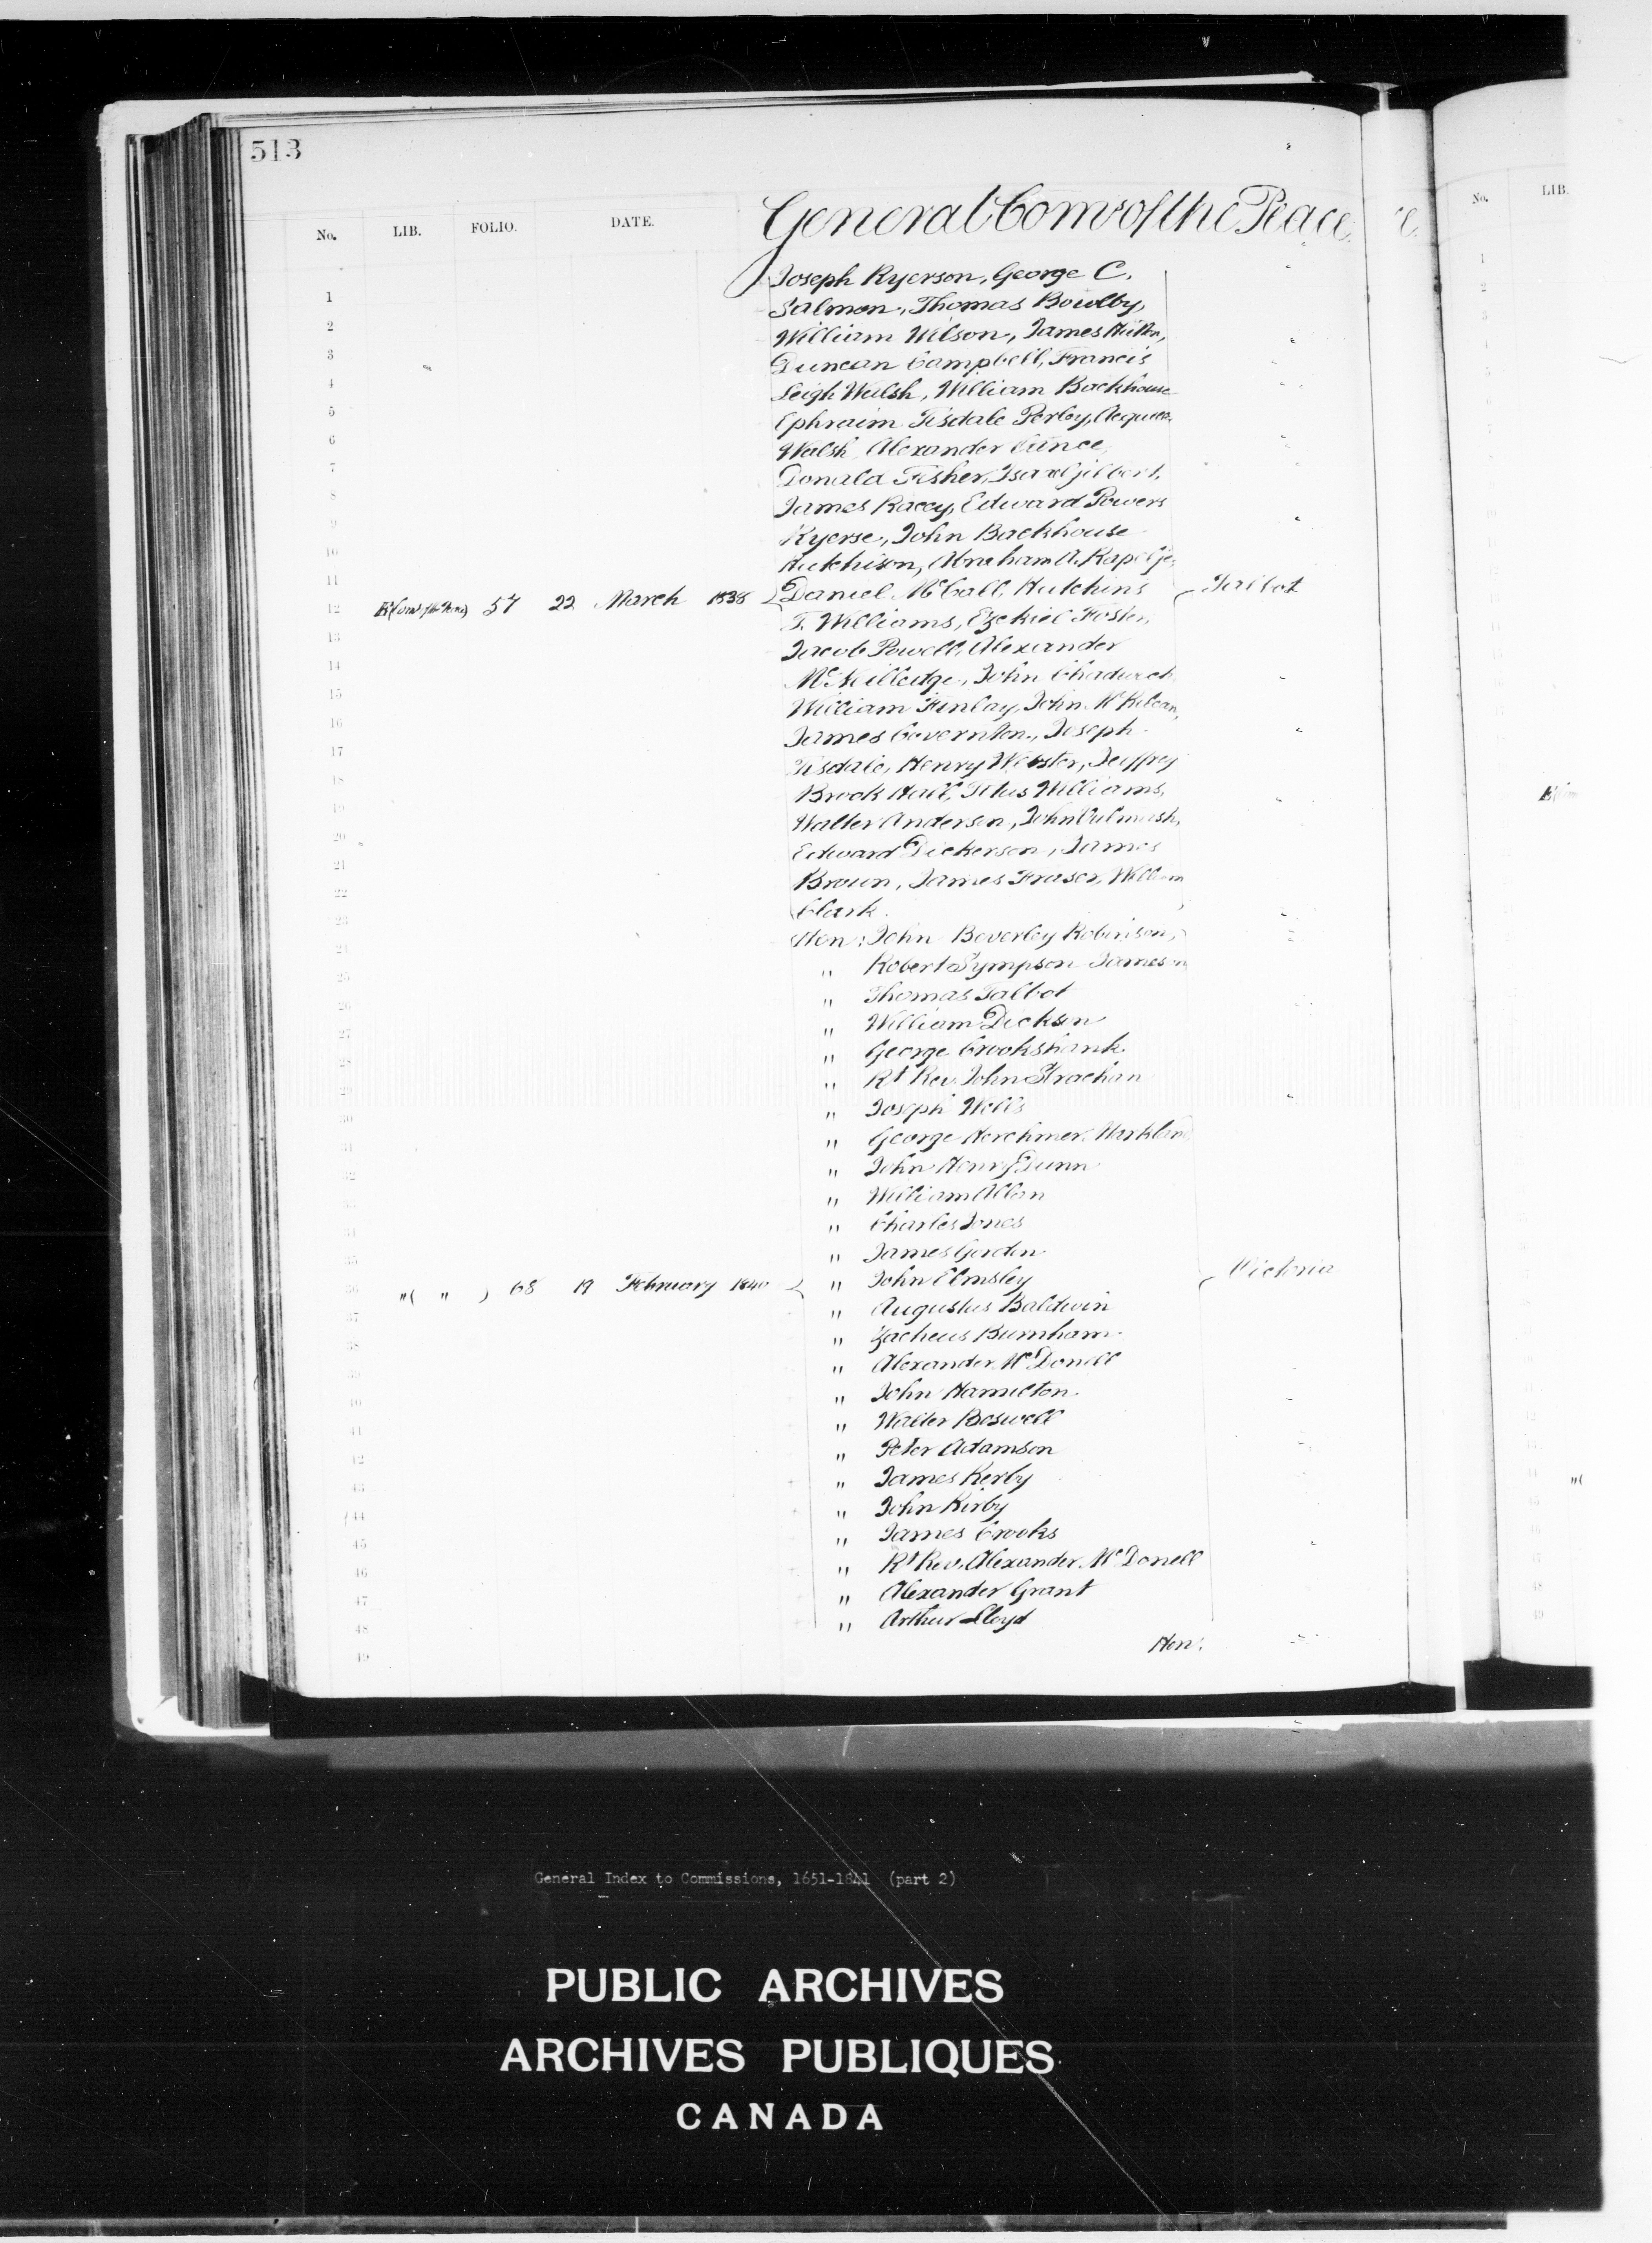 513
General Coms of the Peace
No. LIB. FOLIO. DATE.
No. LIB.
Joseph Ryerson, George C.
1 Salmon, Thomas Bowlby,
2 William Wilson, James
3 Duncan Campbell, Francis
4 Leigh Walsh, William Backhouse
5 Ephraim Tisdale Perley, Aquila
6 Walsh, Alexander
7 Donald Fisher, Isaac Gilbert,
8 James Racey, Edward Powers
9 Ryerse, John Backhouse
10 Hutchison, Abraham A. Rapelje,
11 Daniel McCall, Hutchins
12 57 22 March 1838 Talbot
T. Williams, Ezekiel Foster,
13 Jacob Powell, Alexander
14 McNeilledge, John Chadwick
15 William Finlay, John
16 James Covernton, Joseph
17 Tisdale, Henry Webster, Jeffrey
18 Brock Hall, Titus Williams,
19 Walter Anderson, John
20 Edward Dickerson, James
21 Brown, James Fraser, William
22 Clark.
23 Hon: John Beverley Robinson,
24 " Robert Sympson Jameson
25 " Thomas Talbot
26 " William Dickson
27 " George Crookshank
28 " Rt Rev. John Strachan
29 " Joseph Wells
30 " George Herchmer Markland
31 " John Henry Dunn
32 " William Allan
33 " Charles Jones
34 " James Gordon
35 " John Elmsley
36 "( " ) 68 19 February 1840 Victoria
" Augustus Baldwin
37 " Zacheus Burnham
38 " Alexander McDonell
39 " John Hamilton
40 " Walter Boswell
41 " Peter Adamson
42 " James Kerby
43 " John Kirby
44 " James Crooks
45 " Rt Rev. Alexander McDonell
46 " Alexander Grant
47 " Arthur Lloyd
48 Hon:
49
General Index to Commissions, 1651-1841 (part 2)
PUBLIC ARCHIVES
ARCHIVES PUBLIQUES
CANADA